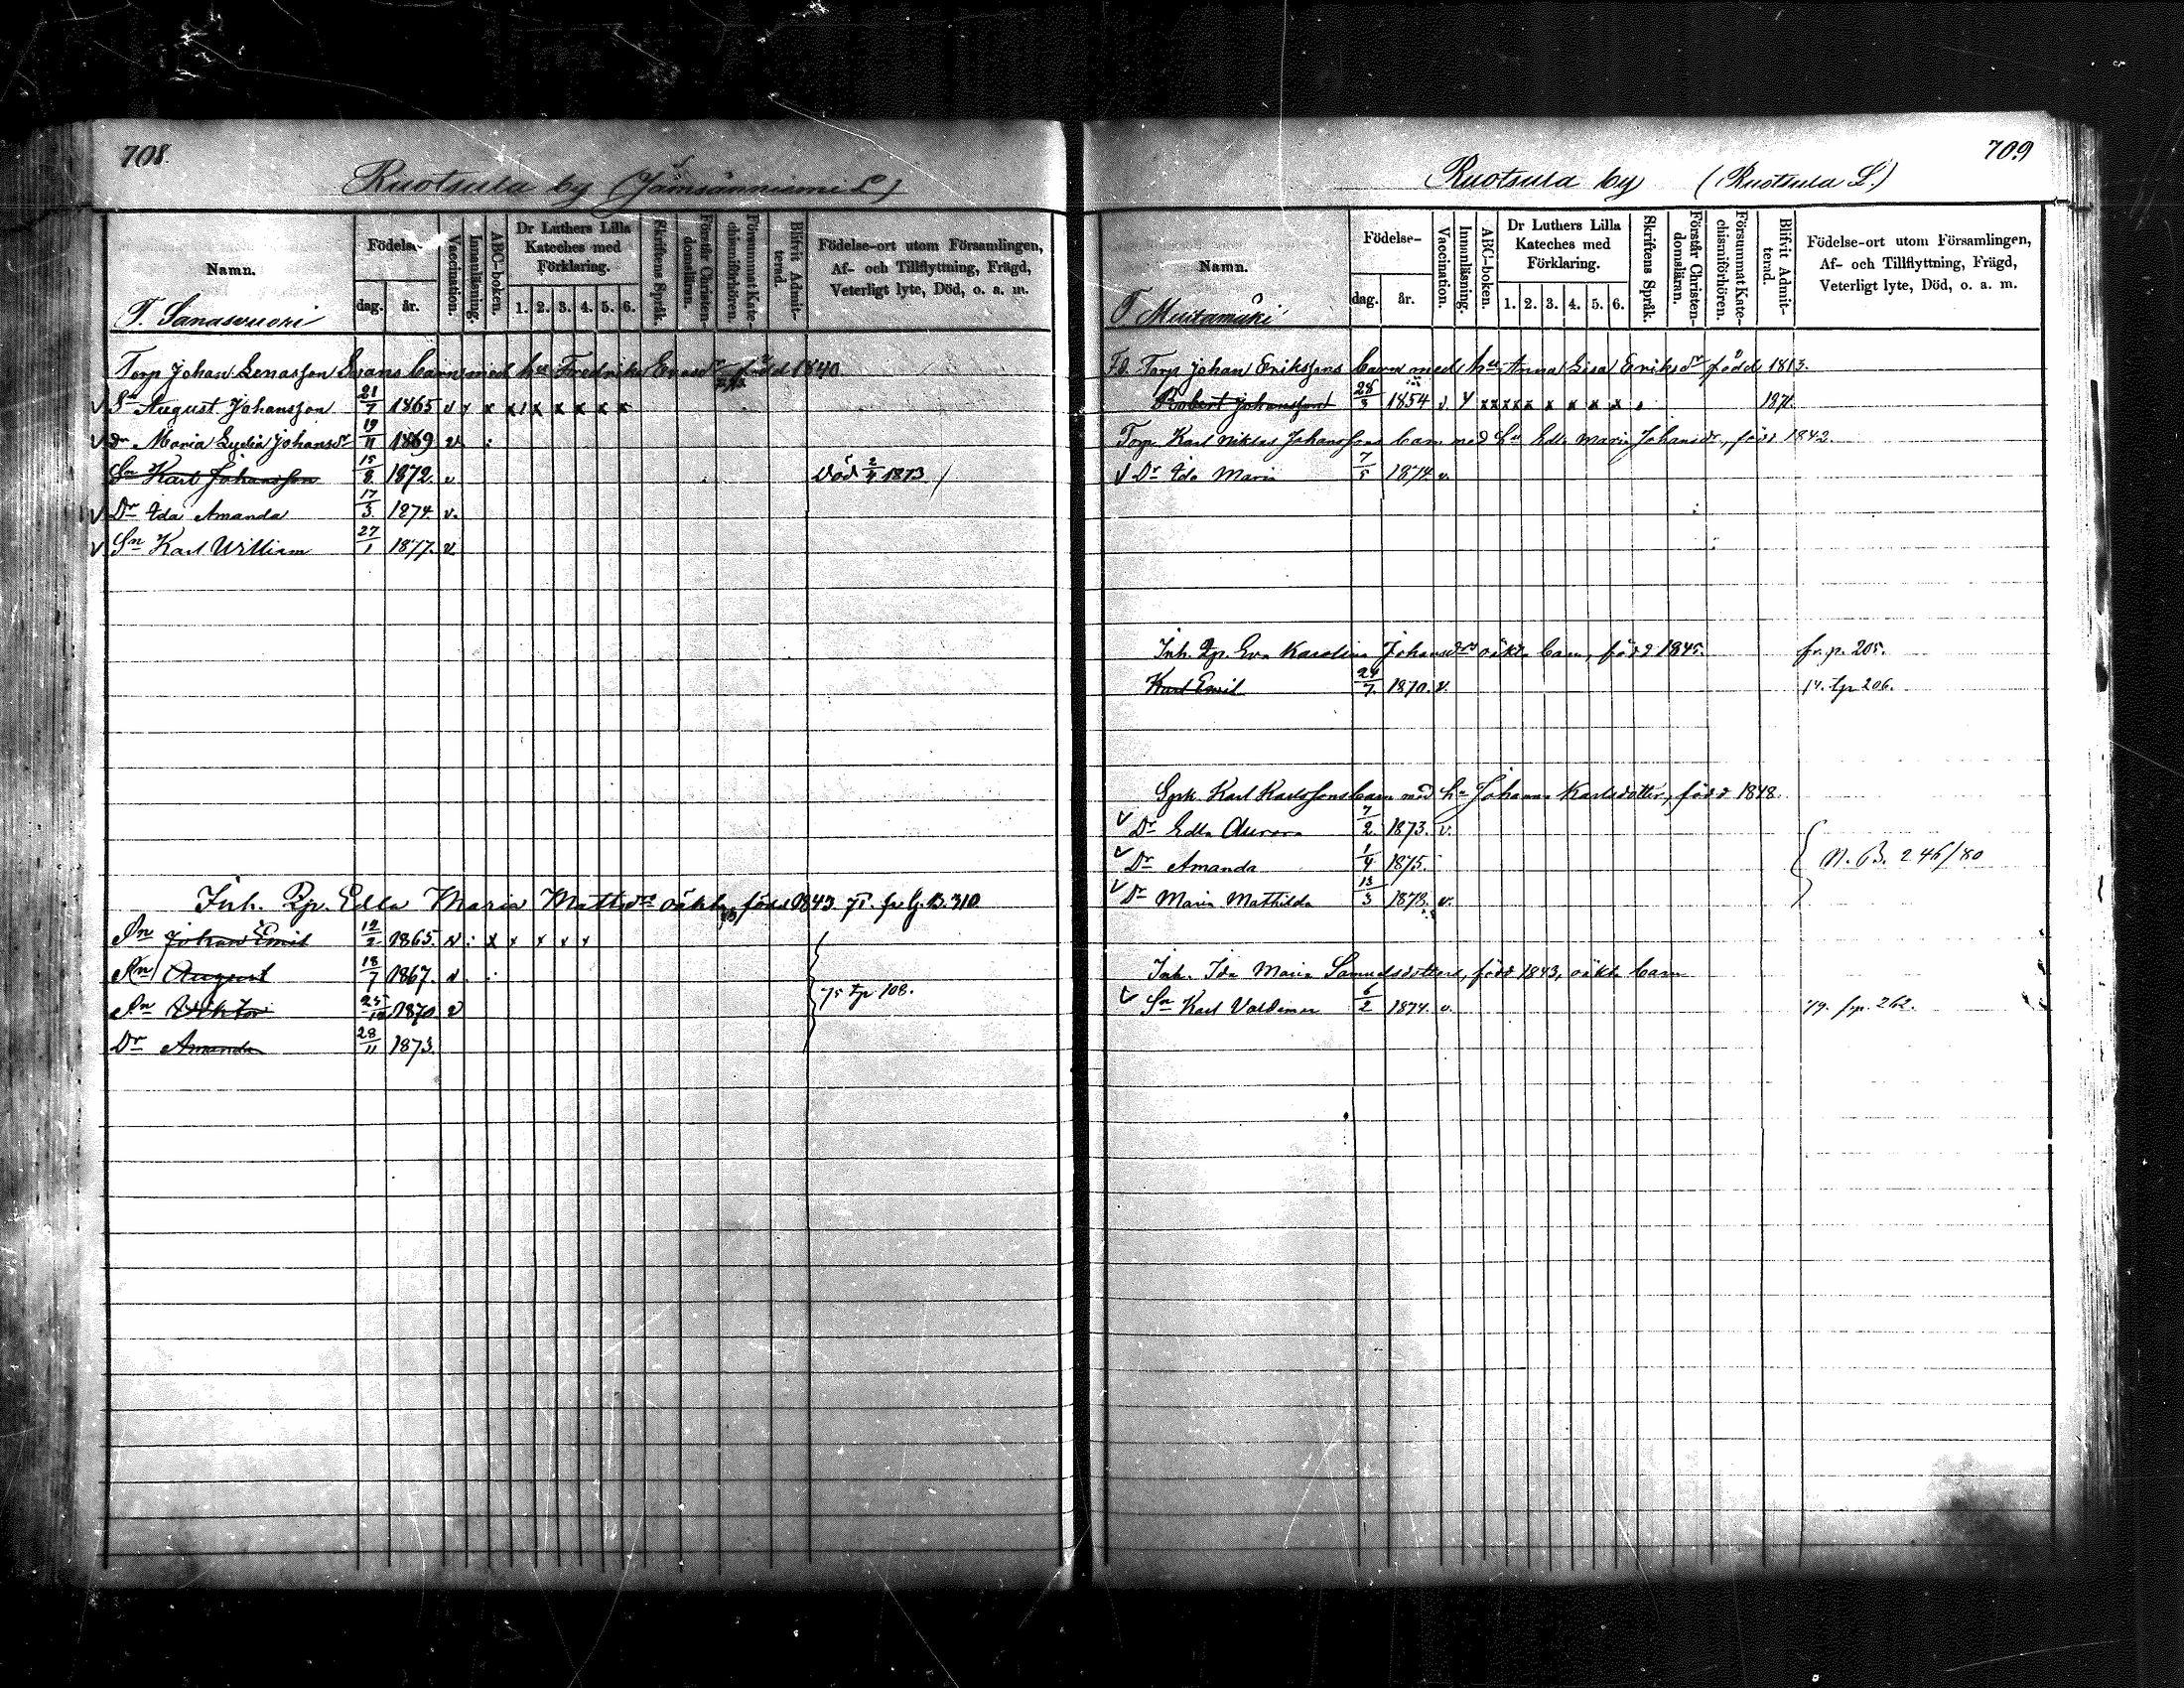 708.
Ruotsula by (Jämsänniemi L)
Namn.
Födelse-
dag.
år.
Vaccination.
Innanläsning.
ABC-boken.
Dr Luthers Lilla
Kateches med
Förklaring.
1. 2. 3. 4. 5. 6.
Skriftens Språk.
Förstår Christen-
domsläran.
Försummat Kate-
chismiförhören.
Blifvit Admit-
terad.
Födelse-ort utom Församlingen,
Af- och Tillflyttning, Frägd,
Veterligt lyte, Död, o. a. m.
T. Sanasvuori
Torp Johan Lenasson Svans barn med hu Fredrika Evasdr född 1840
v Sn August Johansson 21/7 1865 v x x x x x x x x
v Dr Maria Lydia Johansdr 19/11 1869 v :
Sn Karl Johansson 15/8 1872. v Död 2/4 1873
v Dr Ida Amanda 17/3 1874 v.
v Sn Karl William 27/1 1877. v
Inh. Qp. Edla Maria Mattsdr oäkta född 1843 71. fr. G. B. 310
Sn Johan Emil 12/2 1865. v : x x x x x
Sn August 18/7 1867. v. :
Sn Viktor 25/10 1870 v 75 tp 108.
Dr Amanda 28/11 1873.
709
Ruotsula by (Ruotsula L.)
Namn.
Födelse-
dag.
år.
Vaccination.
Innanläsning.
ABC-boken.
Dr Luthers Lilla
Kateches med
Förklaring.
1. 2. 3. 4. 5. 6.
Skriftens Språk.
Förstår Christen-
domsläran.
Försummat Kate-
chismiförhören.
Blifvit Admit-
terad.
Födelse-ort utom Församlingen,
Af- och Tillflyttning, Frägd,
Veterligt lyte, Död, o. a. m.
T. Muitamäki
F.d. Torp Johan Erikssons barn med hu Anna Lisa Eriksdr född 1813.
Robert Johansson 28/3 1854 v. x x x x x x x x x 1871.
Torp Karl Niklas Johanssons barn med hu Edla Maria Johansdr, född 1842.
v Dr Ida Maria 7/5 1874 v.
Inh. Qp. Eva Karolina Johansdrs oäkta barn, född 1845. fr. p. 205.
Karl Emil 24/7 1870. v. 74. tp 206.
Karl Karlssons barn med hu Johanna Karlsdotter, född 1848.
v Dr Edla Aurora 7/2 1873. v.
v Dr Amanda 1/4 1875. N. B. 246/80
v Dr Maria Mathilda 13/3 1878. v.
Inh. Ida Maria Samuelsdotters, född 1843, oäkta barn
v Sn Karl Valdemar 6/2 1874. v. 79. fr p. 262.